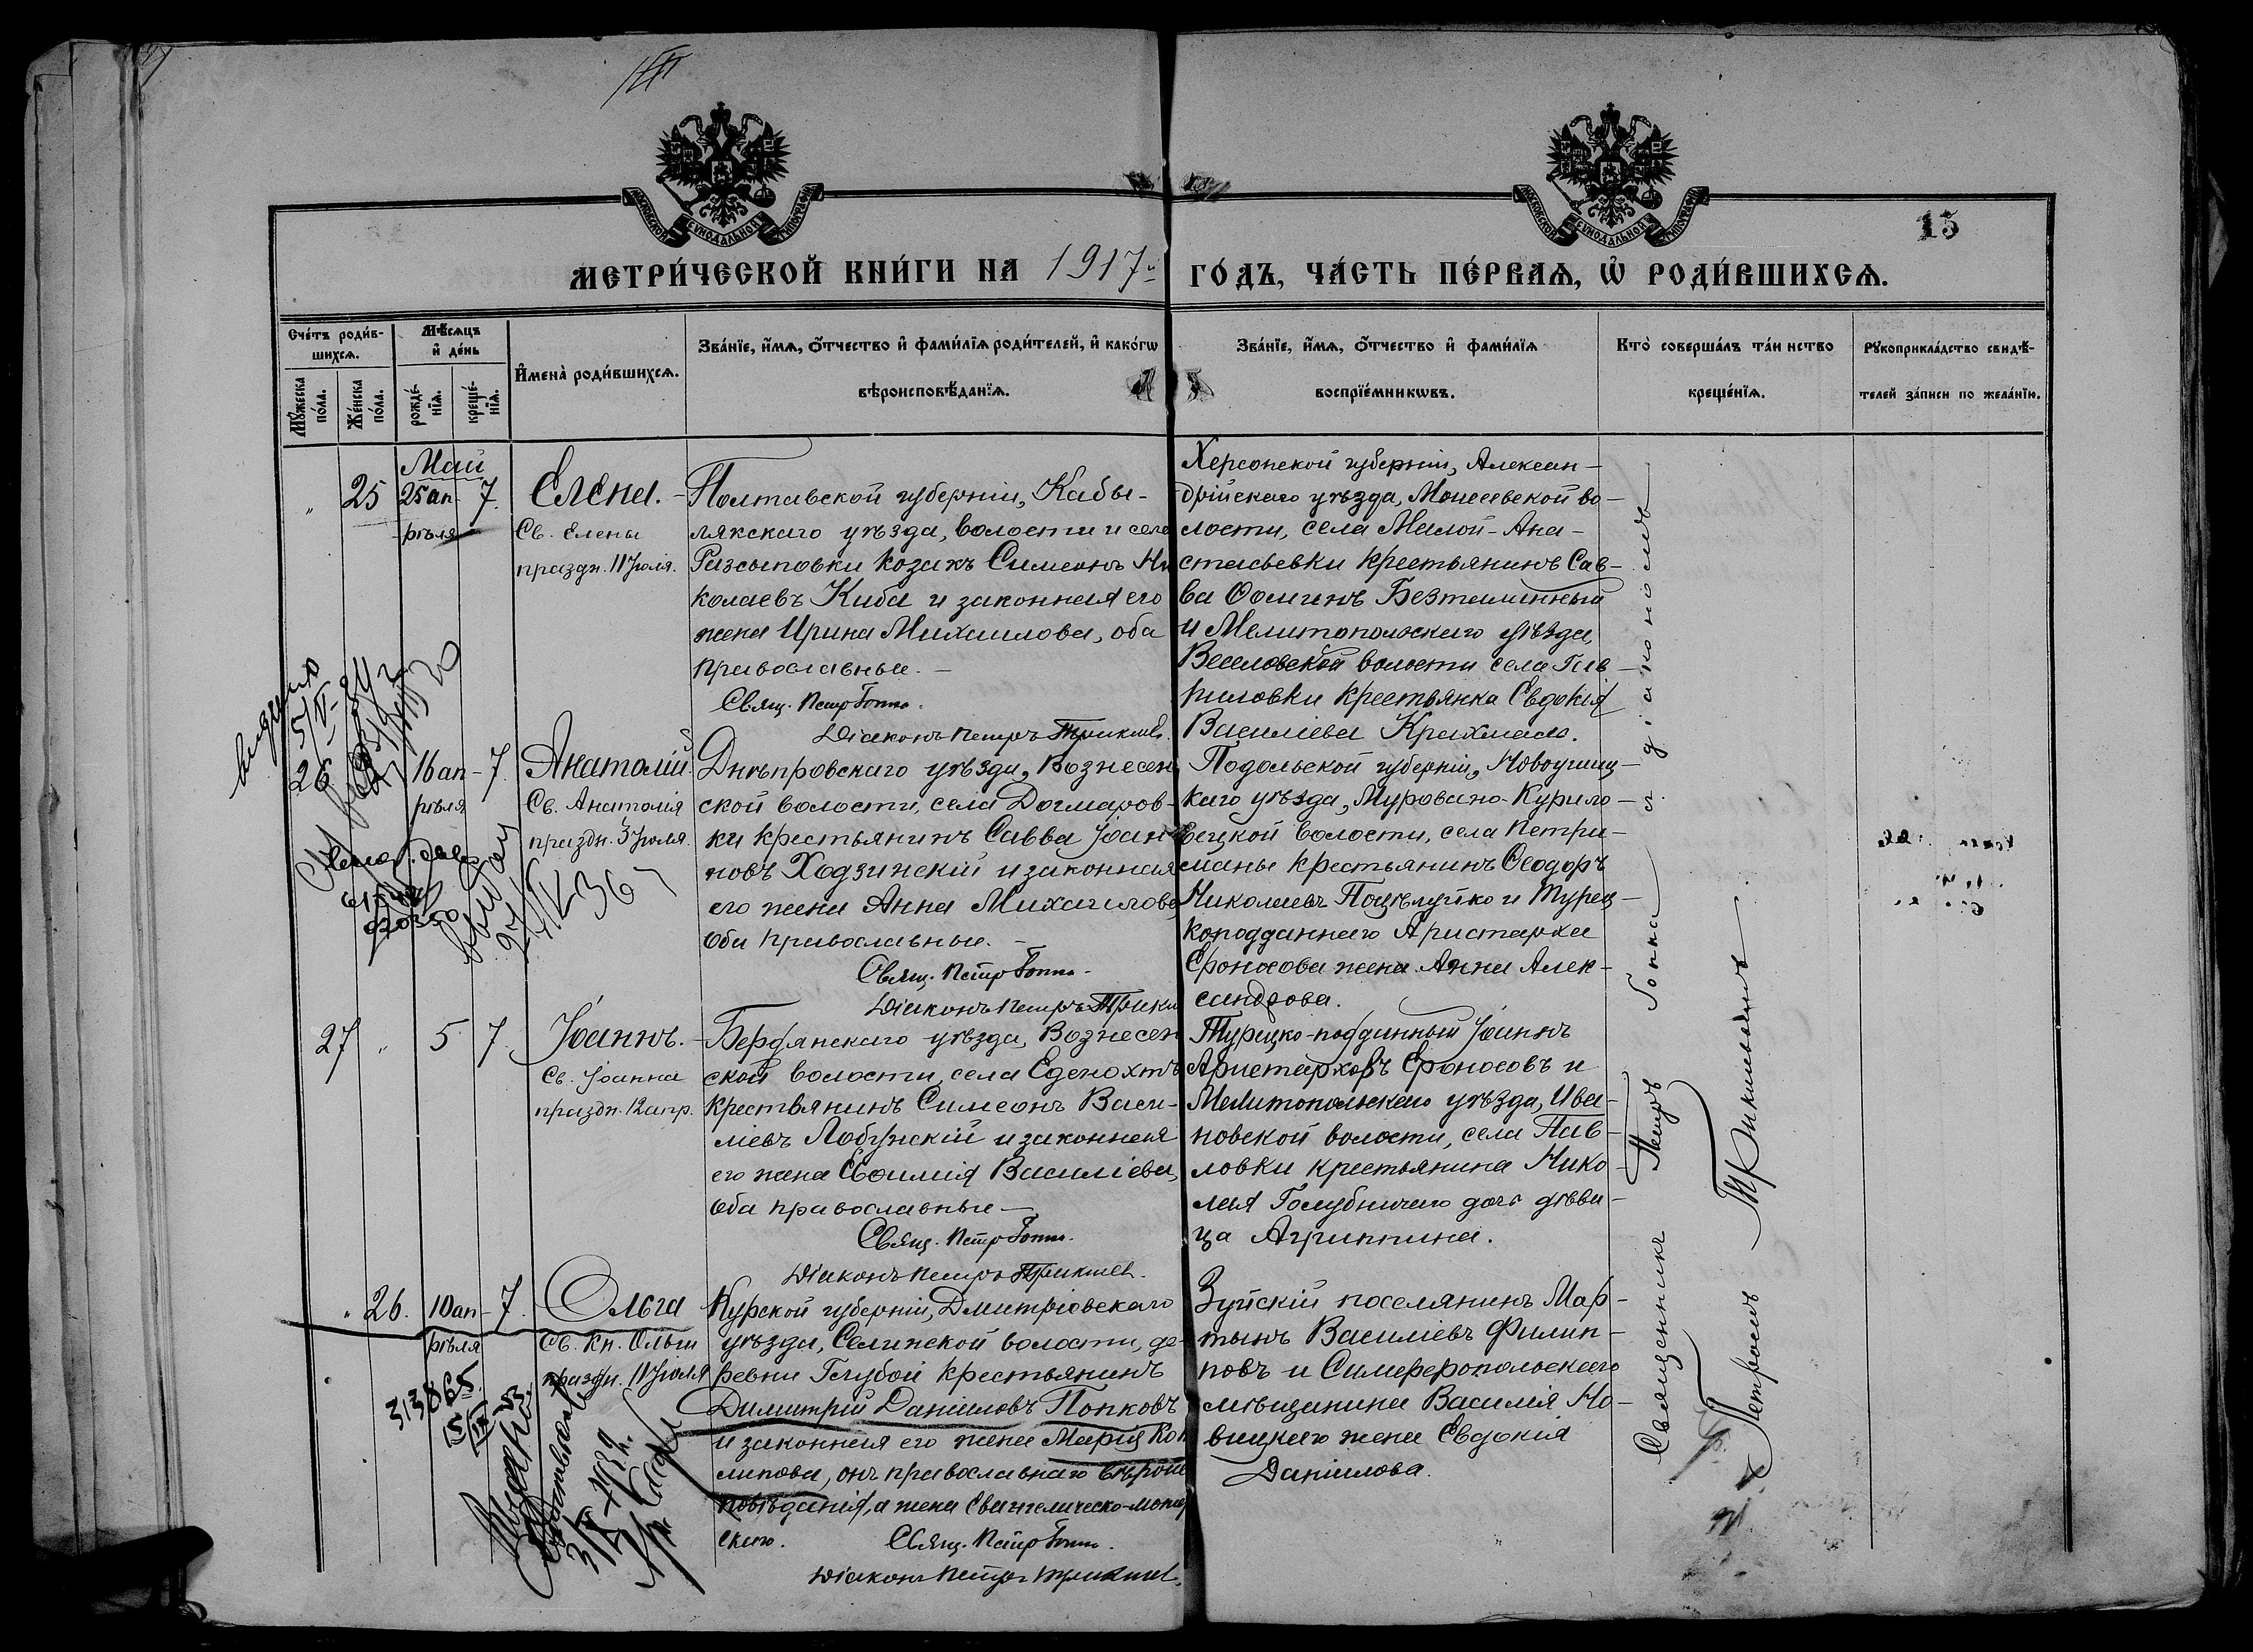 15
МЕТРИ́ЧЕСКОЙ КНИ́ГИ НА 1917 ГО́ДЪ, ЧА́СТЬ ПЕ́РВАѦ, Ѡ҆ РОДИ́ВШИХСѦ.
Сче́тъ роди́в-
шихсѧ.
Мꙋ́жеска по́ла.
Же́нска по́ла.
Мѣ́сѧцъ и҆ де́нь
рожде́-
нїѧ.
креще́-
нїѧ.
И҆мена̀ роди́вшихсѧ.
Зва́нїе, и҆́мѧ, ѻ҆́тчество и҆ фами́лїѧ роди́телей, и҆ како́гѡ
вѣроисповѣ́данїѧ.
Зва́нїе, и҆́мѧ, ѻ҆́тчество и҆ фами́лїѧ
воспрїе́мникѡвъ.
Кто̀ соверша́лъ та́инство
креще́нїѧ.
Рꙋкоприкла́дство свидѣ́-
телей за́писи по жела́нїю.
Май
" 25 25 ап- 7.
рѣля
Елена.
Св. Елены
праздн. 11 Іюля.
Полтавской губерніи, Кабы-
лякскаго уѣзда, волости и села
Разсыповки козакъ Симеонъ Ни
колаевъ Киба и законная его
жена Ирина Михаилова, оба
православные. -
Свящ. Петр Гопка.
Діаконъ Петръ
Херсонской губерніи, Алексан-
дрійскаго уѣзда, Моисеевской во-
лости, села Малой-Ана-
стасьевки крестьянинъ Сав-
ва Ѳоминъ Безталанный
и Мелитопольскаго уѣзда,
Веселовской волости села Гав-
риловки крестьянка Евдокія
Василіева Крахмаль.
26 16 ап- 7.
рѣля
Анатолій.
Св. Анатолія
праздн. 3 Іюля.
Днѣпровскаго уѣзда, Вознесен
ской волости, села Догмаров-
ки крестьянинъ Савва Іоан-
новъ Ходзинскій и законная
его жена Анна Михаилова
оба православные. -
Свящ. Петр Гопка.
Діаконъ Петръ
Подольской губерніи, Новоушиц-
каго уѣзда, Муровано-Курило-
вецкой волости, села Петри-
манъ крестьянинъ Ѳеодоръ
Николаевъ Поцѣлуйко и Турец-
коподданнаго Аристарха
Ефоносова жена Анна Алек-
сандрова.
27 " 5 7.
Іоаннъ.
Св. Іоанна
праздн. 12 апр.
Бердянскаго уѣзда, Вознесен
ской волости, села Еденохтъ
крестьянинъ Симеонъ Васи-
ліевъ Лобунскій и законная
его жена Евѳимія Василіева,
оба православные -
Свящ. Петр Гопка.
Діаконъ Петръ
Турецко-подданный Іоаннъ
Аристарховъ Ефоносовъ и
Мелитопольскаго уѣзда, Ива-
новской волости, села Пав-
ловки крестьянина Нико-
лая Голубничаго дочь дѣви-
ца Агриппина.
" 26. 10 ап- 7.
рѣля
Ольга
Св. Кн. Ольги
праздн. 11 Іюля
Курской губерніи, Дмитріовскаго
уѣзда, Селинской волости, де-
ревни Голубой крестьянинъ
Димитрій Даніиловъ Попковъ
и законная его жена Марія
онъ православнаго вѣроис
повѣданія, а жена Евангелическо-лютер
скаго.
Свящ. Петр Гопка.
Діаконъ Петръ
Зуйскій поселянинъ Мар-
тынъ Василіевъ Филип-
повъ и Симферопольскаго
мѣщанина Василія Но-
вицкаго жена Евдокія
Даніилова.
Священникъ Петръ Гопка с діакономъ
Петромъ
313865